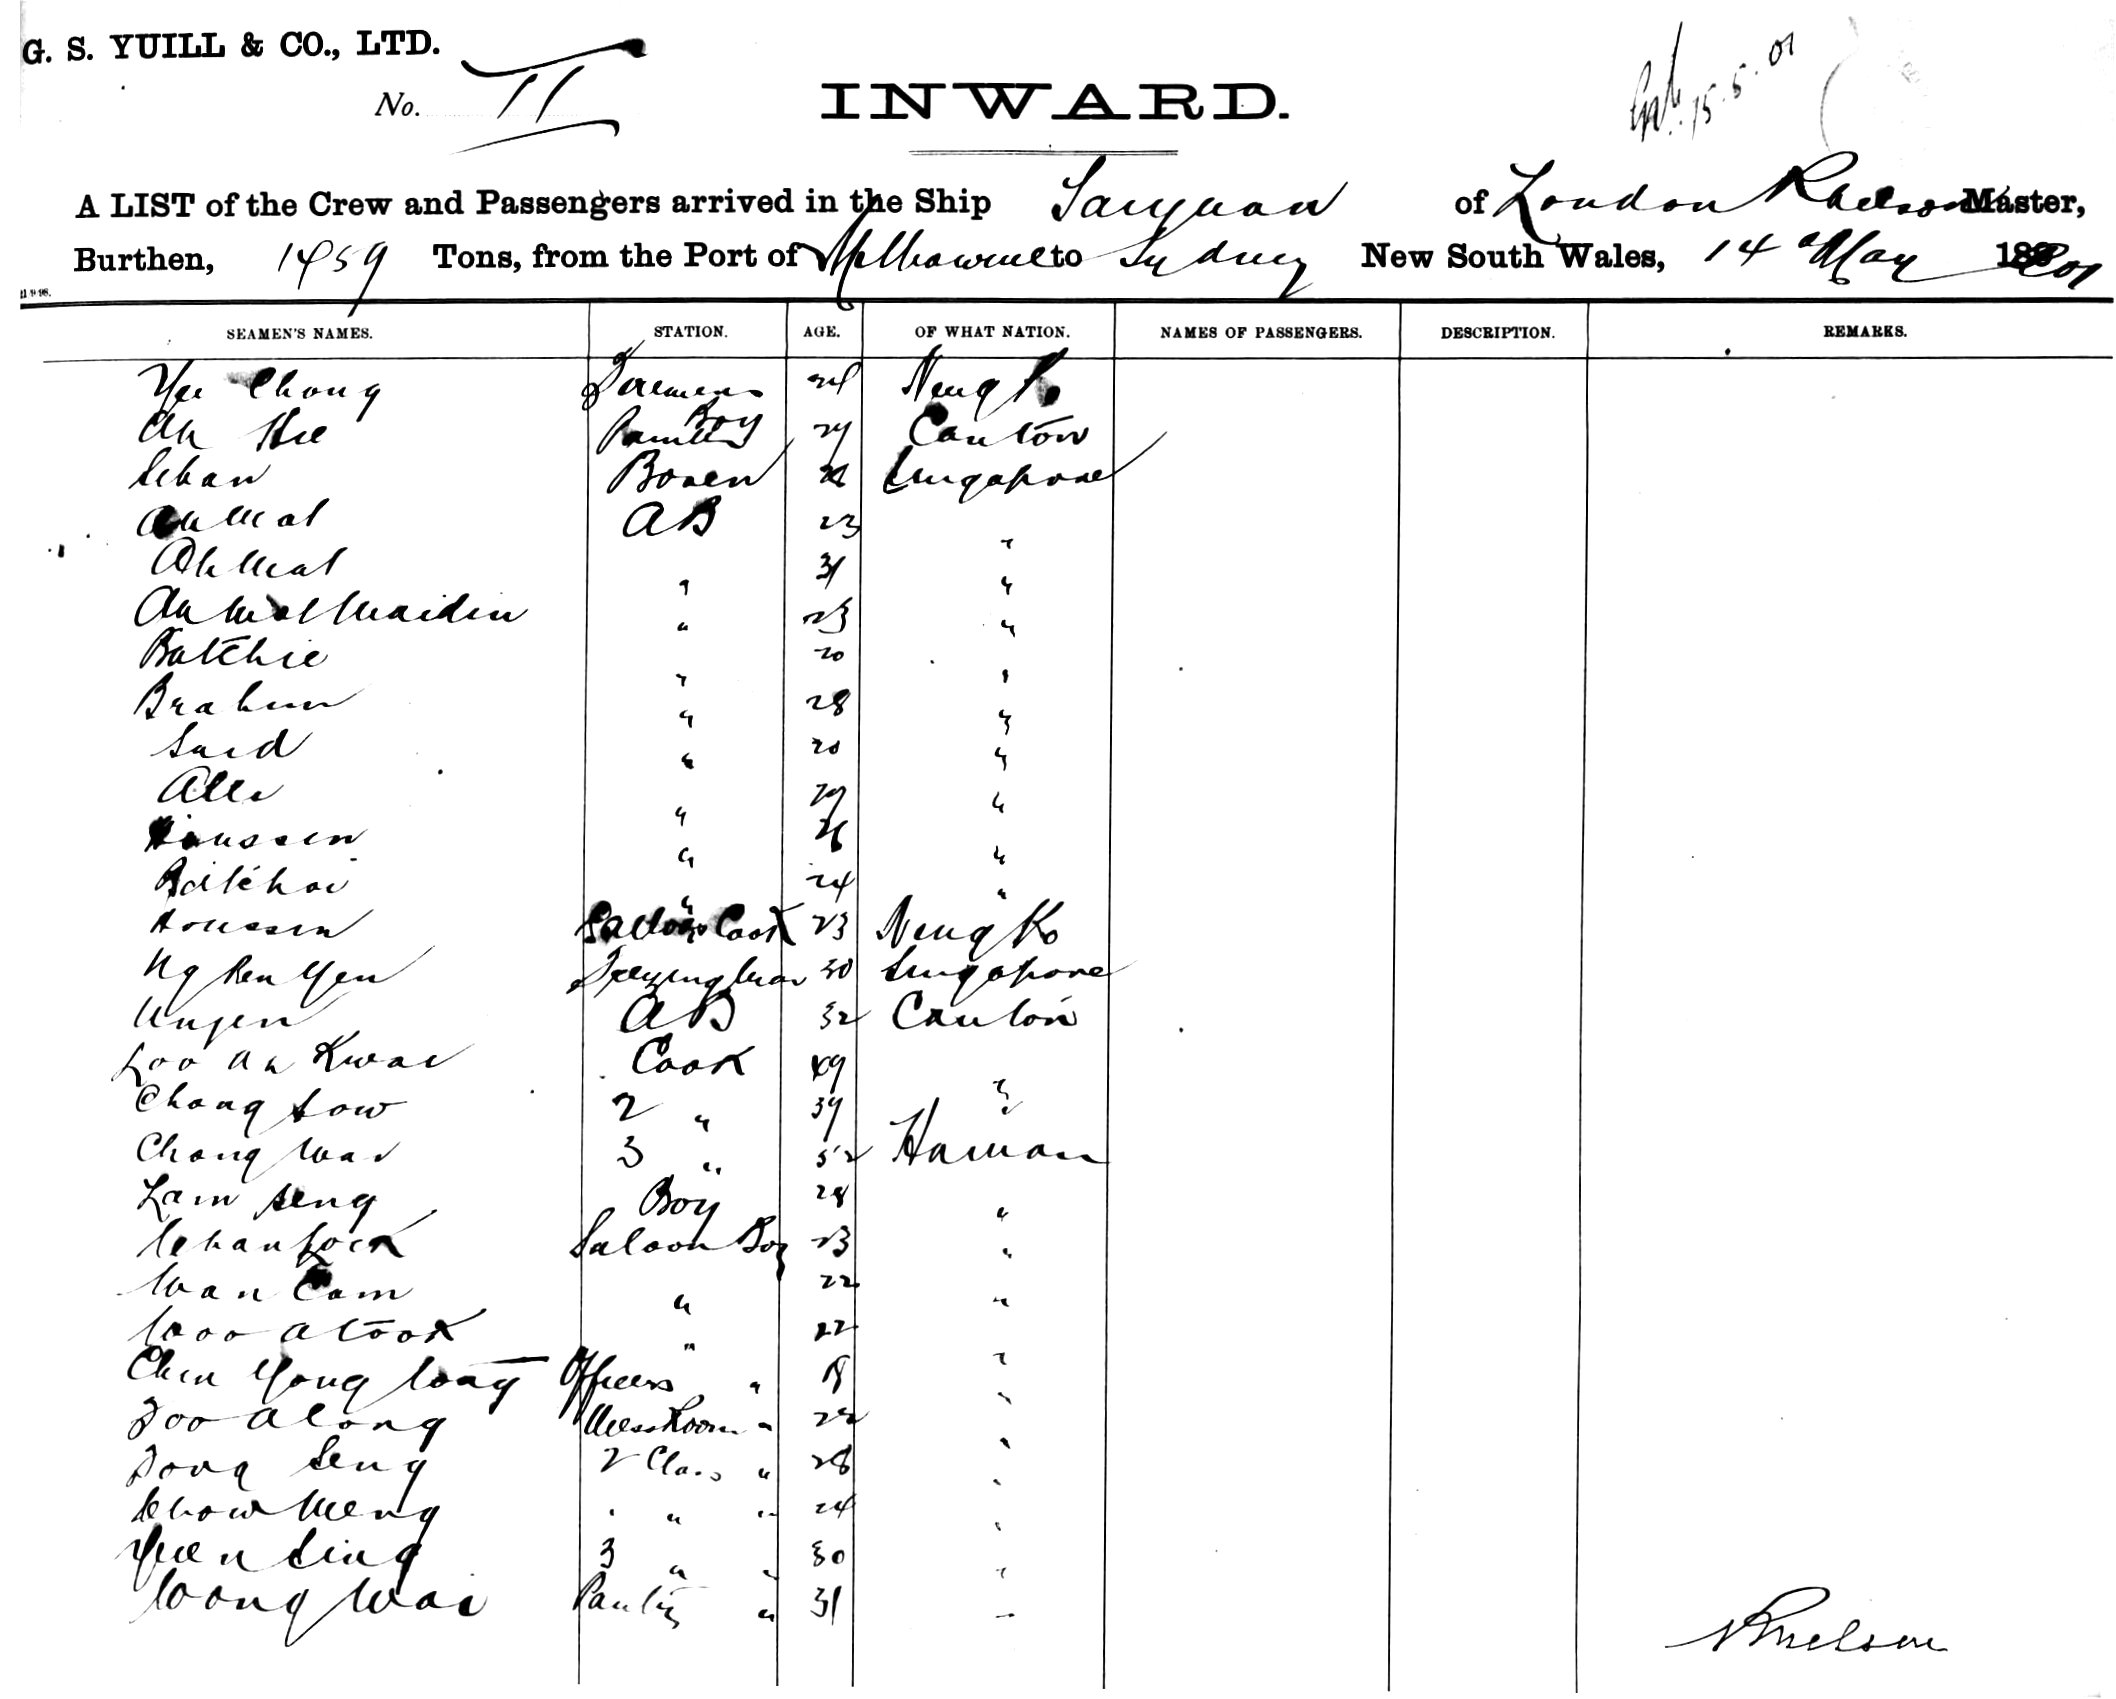 G. S. YUILL & CO., LTD.
No. II
INWARD.
15.5.01
A LIST of the Crew and Passengers arrived in the Ship Taiyuan of London Nelson Master,
Burthen, 1459 Tons, from the Port of Melbourne to Sydney New South Wales, 14 May 1901
SEAMEN'S NAMES. STATION. AGE. OF WHAT NATION. NAMES OF PASSENGERS. DESCRIPTION. REMARKS.
Yee Chong Firemens 24 Ning Po
Ah Hee Boy 27 Canton
Sehan Bosen Singapore
Ah Mat AB 23 "
Ah Mat " 31 "
Ah Mat Maidin " 23 "
Batchie " 20 "
Brahim " 28 "
Said " 20 "
Alli " 27 "
Houssen " 26 "
Batchoi " 24 "
Houssen Saloon Cook 23 Ning Po
Ng Ken Yen 30 Singapore
Unjen AB 32 Canton
Loo Ah Kwai Cook 49 "
Chong Sow 2 " 37 "
Chong Wai 3 " 52 Hainan
Lam Seng Boy 28 "
Chan Sock Saloon Boy 23 "
Wan Cam " 22 "
Woo Atook " 22 "
Chin Yong Wong Officers " 18 "
Foo Along Mess Room " 22 "
Fong Seng 2 Class " 28 "
Show Meng " " " 24 "
Yuen Sing 3 " " 30 "
Wong Wai Pantry " 31 "
Nelson